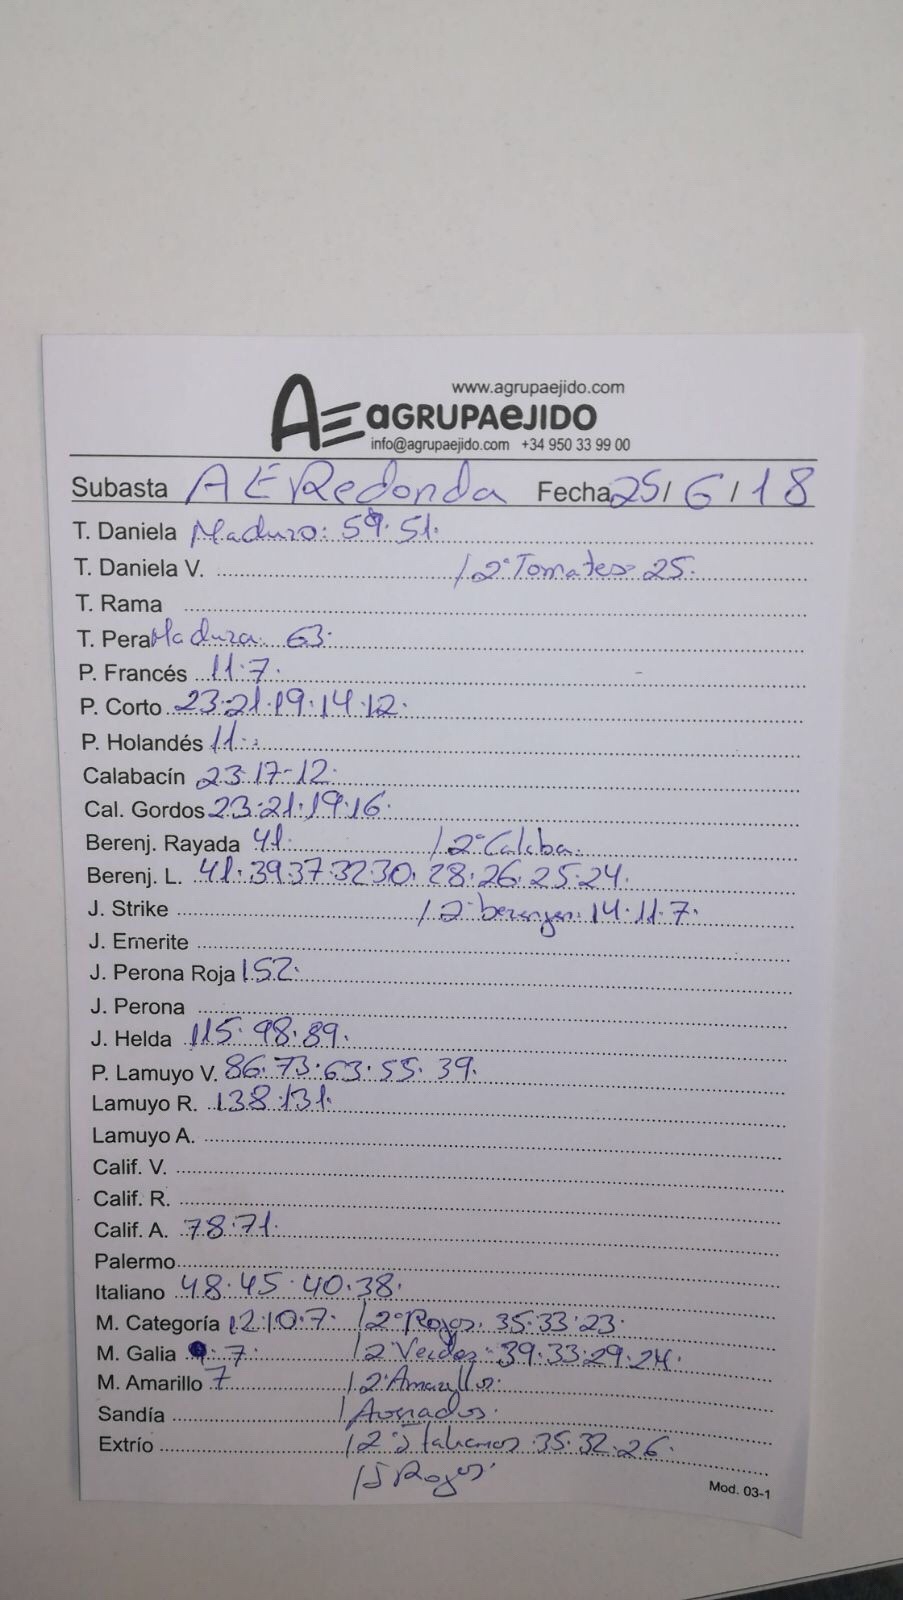 www.agrupaejido.com
AE aGRUPAeJIDO
info@agrupaejido.com +34 950 33 99 00
Subasta AE Redonda Fecha 25/6/18
T. Daniela Maduro: 59·51·
T. Daniela V. /2ª Tomates 25·
T. Rama
T. Pera Madura 63·
P. Francés 11·7·
P. Corto 23·21·19·14·12·
P. Holandés 11·
Calabacín 23·17-12·
Cal. Gordos 23·21·19·16·
Berenj. Rayada 41· /2ª Calaba·
Berenj. L. 41·39·37·32·30·28·26·25·24·
J. Strike /2ª berenjen· 14·11·7·
J. Emerite
J. Perona Roja 152·
J. Perona
J. Helda 115·98·89·
P. Lamuyo V. 86·73·63·55·39·
Lamuyo R. 138·131·
Lamuyo A.
Calif. V.
Calif. R.
Calif. A. 78·71·
Palermo
Italiano 48·45·40·38·
M. Categoría 12·10·7· /2ª Rojos· 35·33·23·
M. Galia 7· /2ª Verdes· 39·33·29·24·
M. Amarillo 7 /2ª Amarillos·
Sandía /Asurados·
Extrío /2ª Italianos 35·32·26·
/J Rojos·
Mod. 03-1